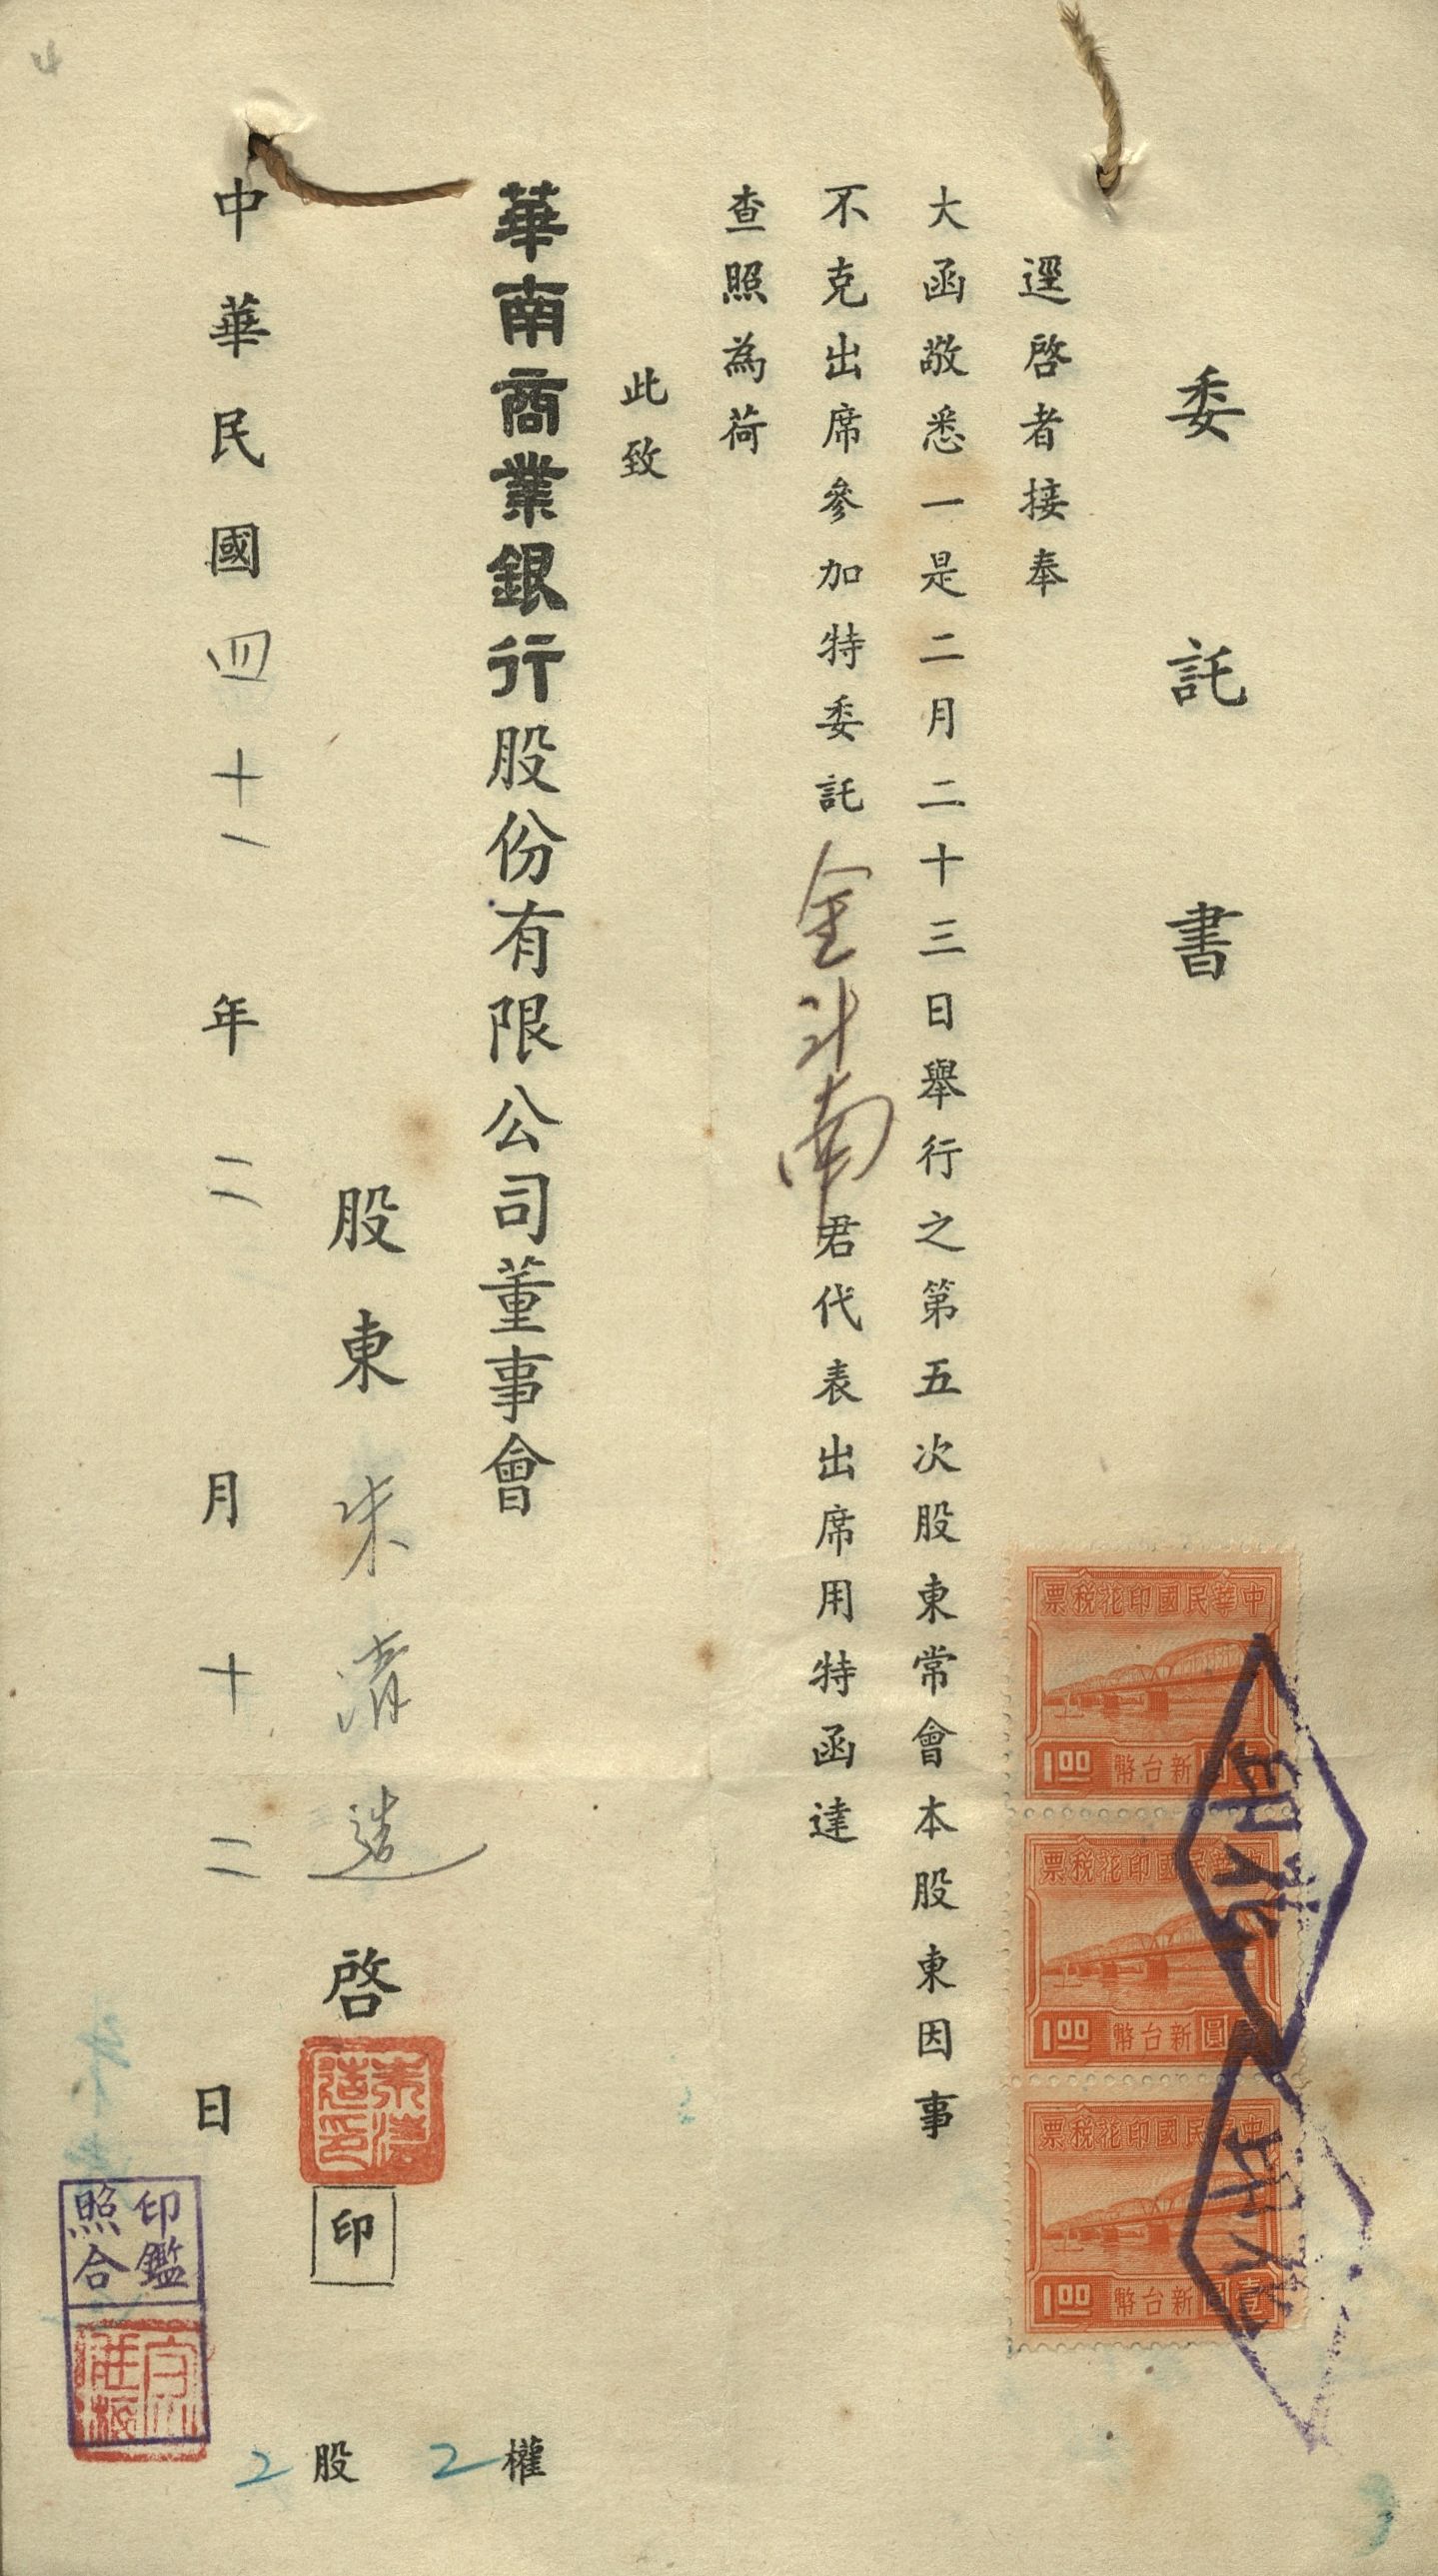 委託書
逕啓者接奉
大函敬悉一是二月二十三日舉行之第五次股東常會本股東因事
不克出席參加特委託金斗南君代表出席用特函達
查照為荷
此致
華南商業銀行股份有限公司董事會
股東朱清造啓
印
中華民國四十一年二月十二日
2權
2股
印鑑
照合
朱清
造印
中華民國印花稅票
壹圓新台幣
1.00
中華民國印花稅票
壹圓新台幣
1.00
中華民國印花稅票
壹圓新台幣
1.00